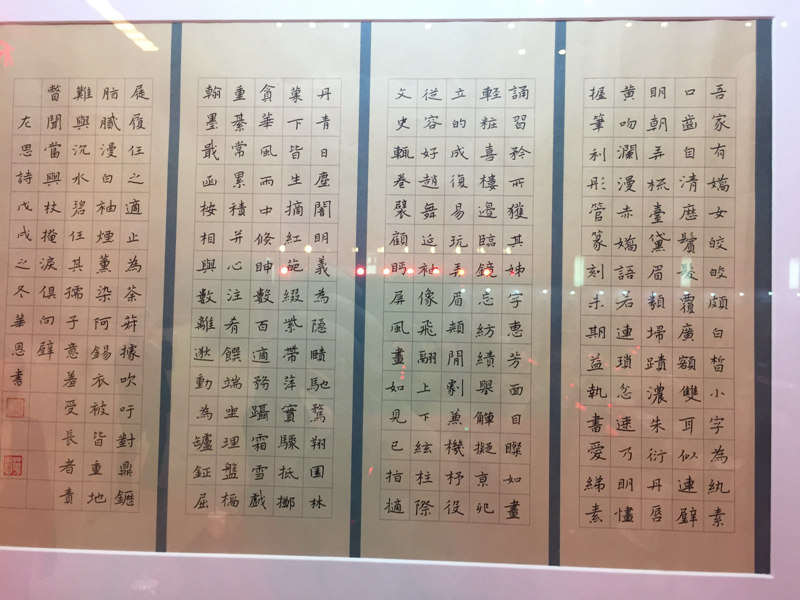 吾家有嬌女皎皎頗白皙小字為紈素
口齒自清歷鬢髮覆廣額雙耳似連璧
明朝弄梳臺黛眉類埽蹟濃朱衍丹唇
黃吻瀾漫赤嬌語若連瑣忿速乃明㦎
握筆利彤管篆刻未期益執書愛綈素
誦習矜所獲其姊字惠芳面目如畫
輕粧喜樓邊臨鏡忘紡績舉觶擬京兆
立的成復易玩弄眉頰間劇兼機杼役
從容好趙舞延袖像飛翮上下絃柱際
文史輒卷襞顧眄屏風畫如見已指擿
丹青日塵闇明義為隱賾馳騖翔園林
菓下皆生摘紅葩綴紫蔕萍實驟抵擲
貪華風雨中倏眒數百適務躡霜雪戲
重綦常累積并心注肴饌端坐理盤槅
翰墨戢函桉相與數離逖動為壚鉦屈
屣履任之適止為荼菽據吹吁對鼎䥶
脂膩漫白袖煙薰染阿錫衣被皆重地
難與沉水碧任其孺子意羞受長者責
瞥聞當與杖掩淚俱向壁
左思詩戊戌之冬華恩書